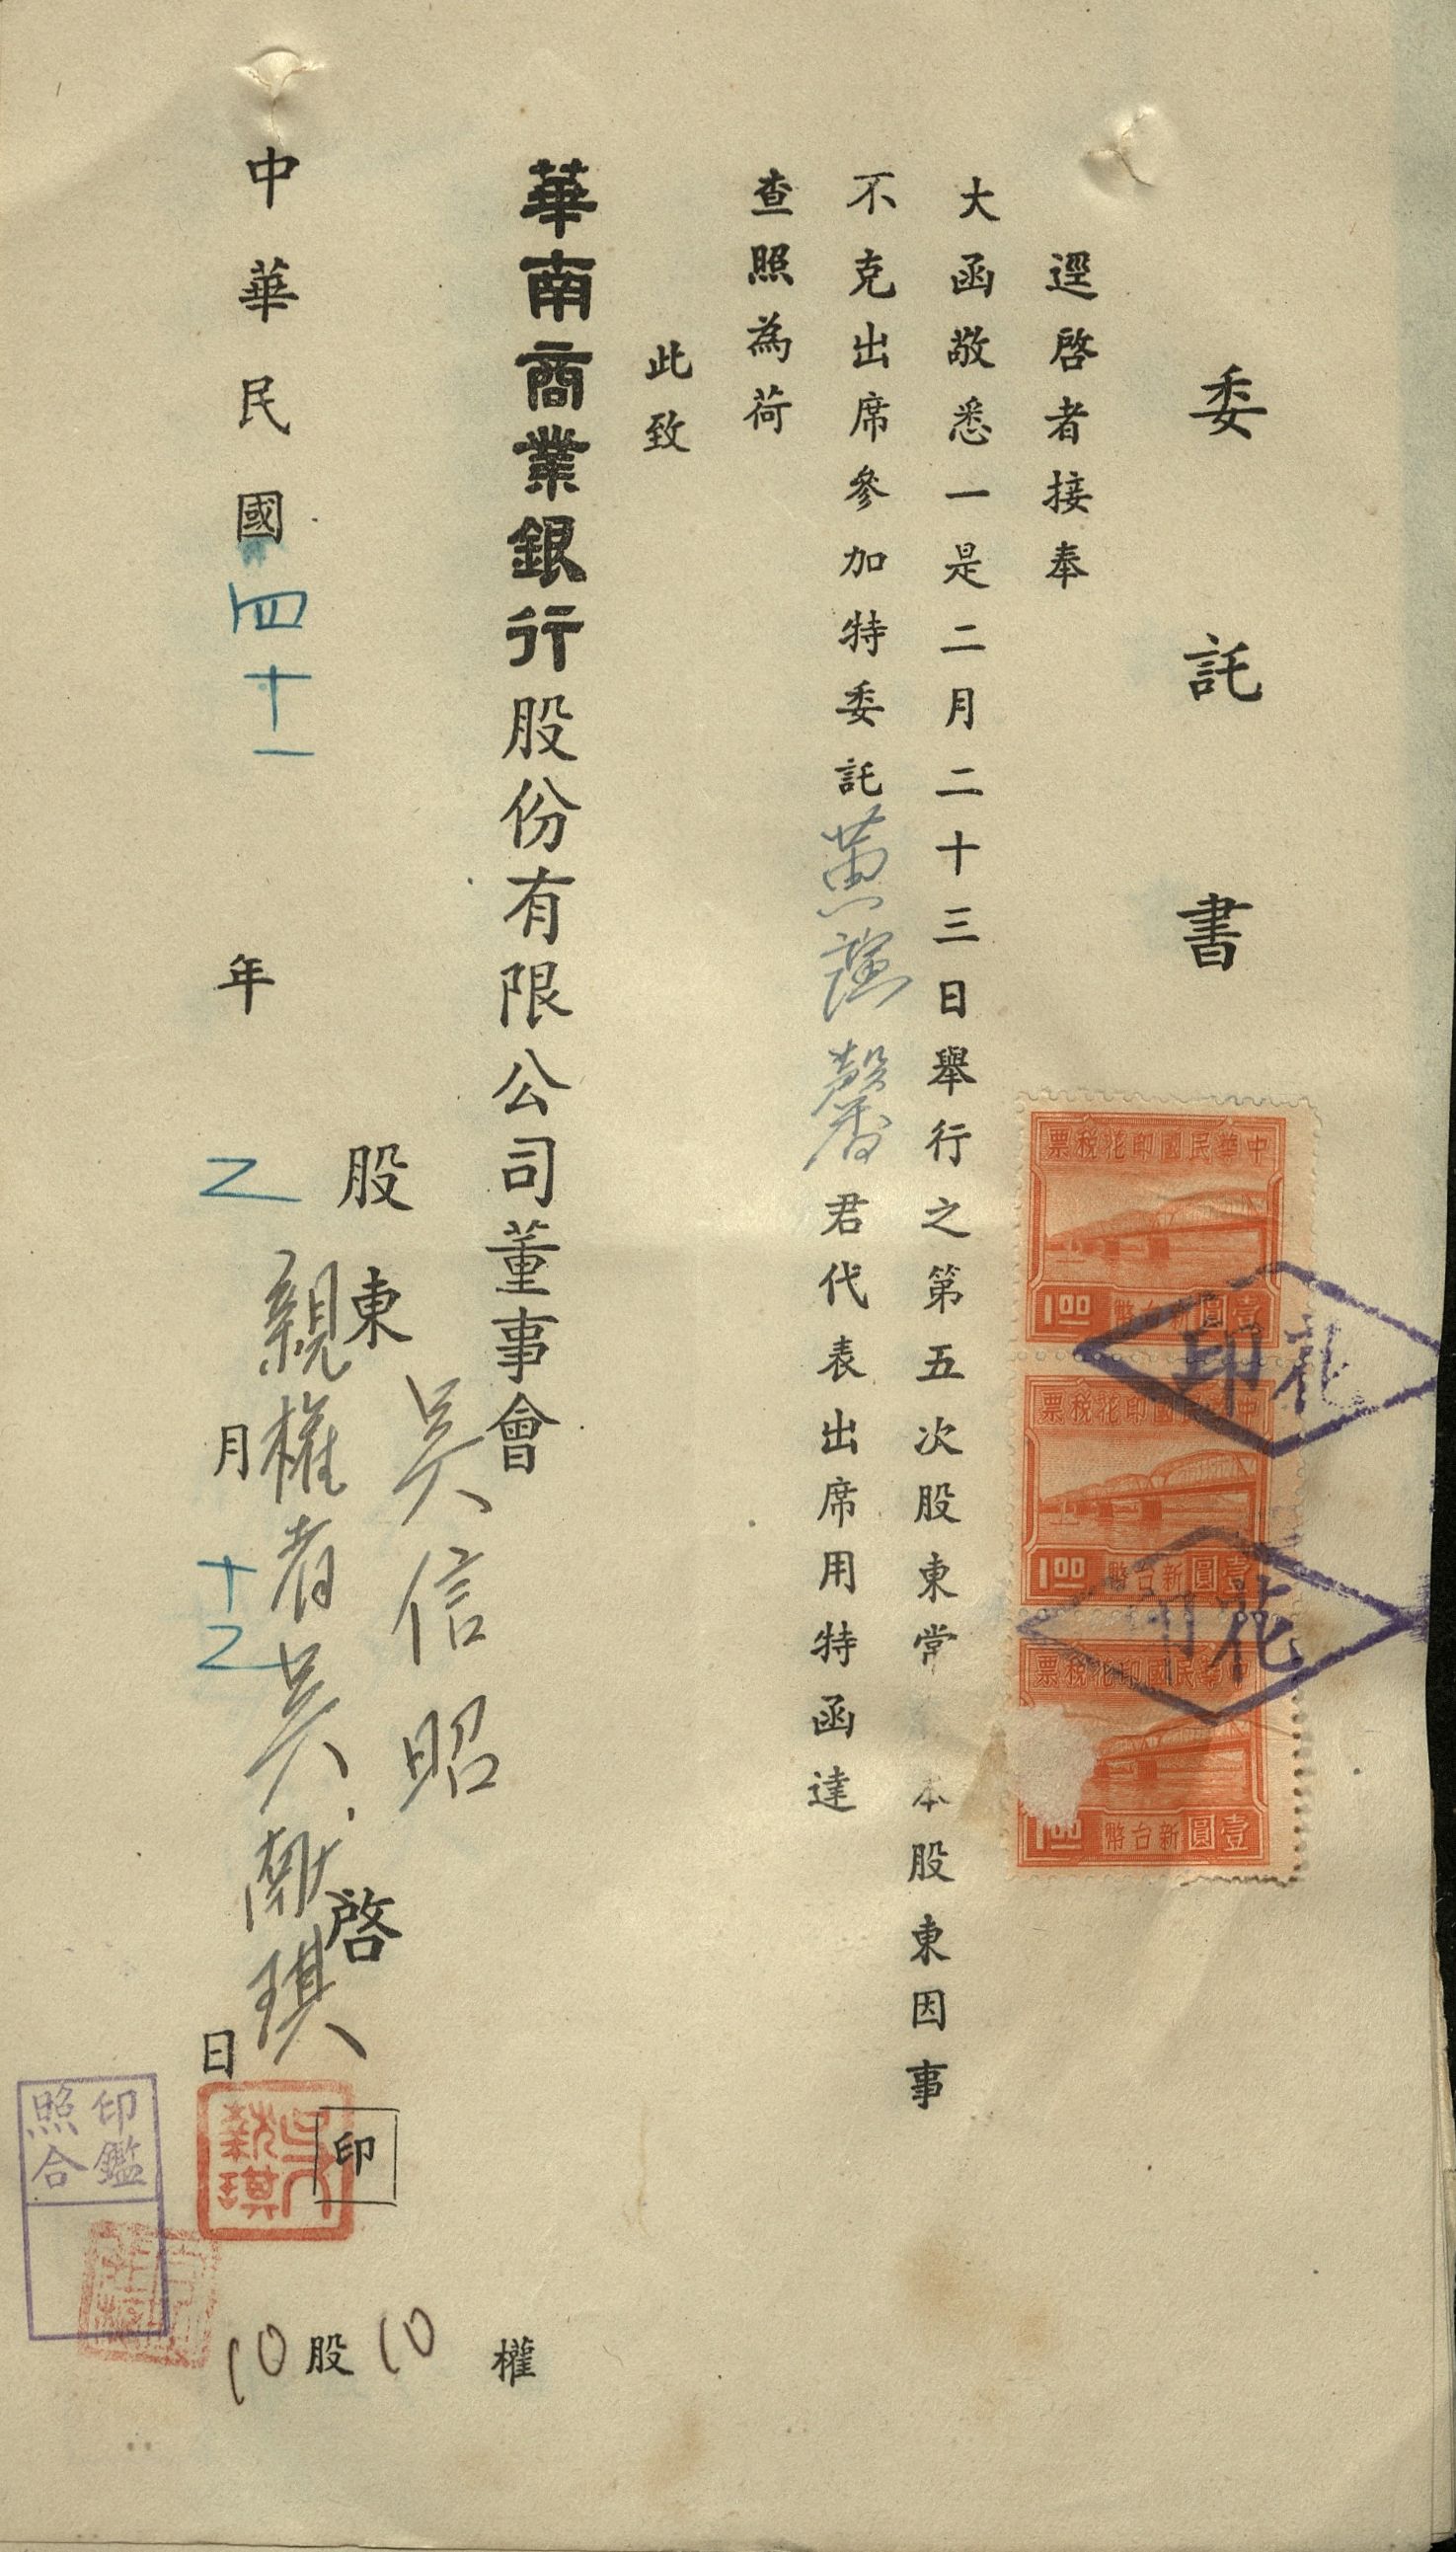 委託書
逕啓者接奉
大函敬悉一是二月二十三日舉行之第五次股東常
本股東因事
不克出席參加特委託黃
馨君代表出席用特函達
查照為荷
此致
華南商業銀行股份有限公司董事會
股東 吳信昭 啓
印
親權者 吳獻琪
吳獻琪
中華民國四十一年 乙月 十乙日
10股10權
印鑑
照合
中華民國印花稅票
1.00 壹圓新台幣
中華民國印花稅票
1.00 壹圓新台幣
中華民國印花稅票
1.00 壹圓新台幣
印花
印花